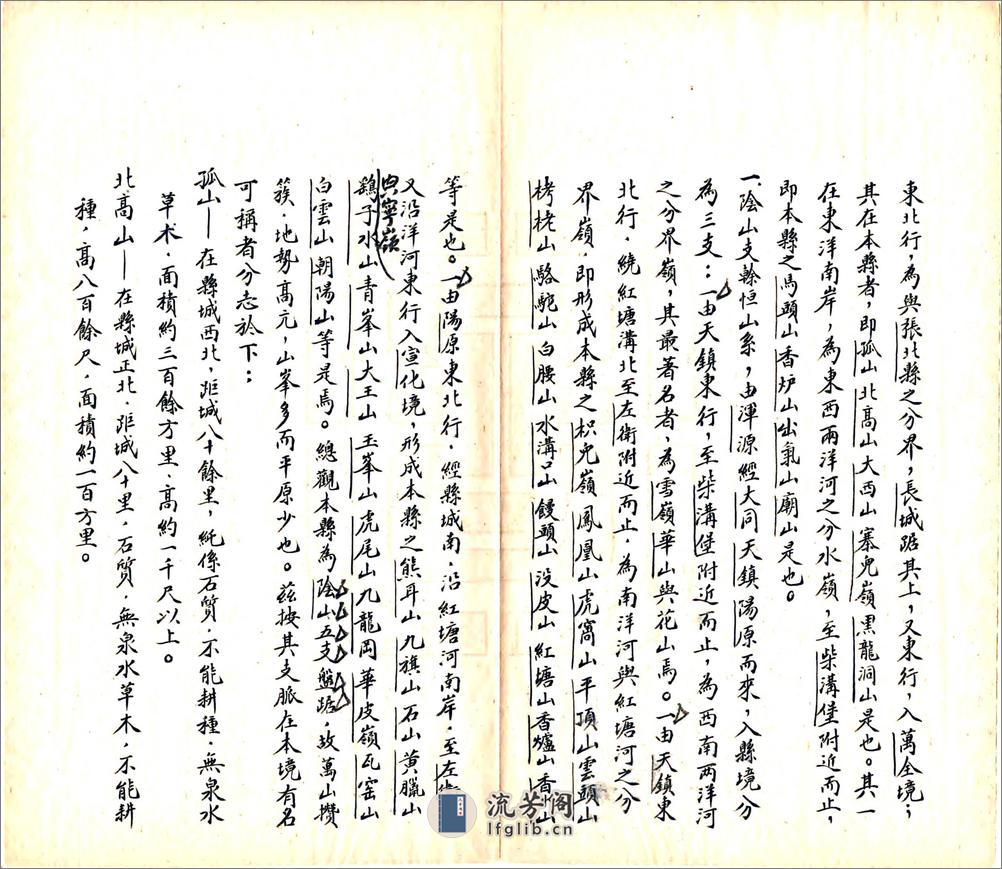 東北行，為與張北縣之分界，長城踞其上，又東行，入萬全境，
其在本縣者，即孤山北高山大西山寨兒嶺黑龍洞山是也。其一
在東洋南岸，為東西兩洋河之分水嶺，至柴溝堡附近而止，
即本縣之馬頭山香炉山出氣山廟山是也。
一、陰山支榦恒山系，由渾源經大同天鎮陽原而來，入縣境分
為三支：一由天鎮東行，至柴溝堡附近而止，為西南两洋河
之分界嶺，其最著名者，為雪嶺華山與花山焉。一由天鎮東
北行，繞紅塘溝北至左衛附近而止，為南洋河與紅塘河之分
界嶺，即形成本縣之枳兒嶺鳳凰山虎窩山平頂山雲頭山
栲栳山駱駝山白腰山水溝口山饅頭山没皮山紅塘山香爐山香山
等是也。一由陽原東北行，經縣城南，沿紅塘河南岸，至左衛
又沿洋河東行入宣化境，形成本縣之熊耳山九旗山石山黄臘山
興寧嶺
鷂子水山青峯山大王山玉峯山虎尾山九龍岡華皮嶺瓦窑山
白雲山朝陽山等是焉。總觀本縣為陰山五支盤踞，故萬山攢
簇，地勢高元，山峯多而平原少也。茲按其支脈在本境有名
可稱者分志於下：
孤山——在縣城西北，距城八十餘里，純係石質，不能耕種，無泉水
草木，面積約三百餘方里，高約一千尺以上。
北高山——在縣城正北，距城八十里，石質，無泉水草木，不能耕
種，高八百餘尺，面積約一百方里。
流芳阁
lfglib.cn